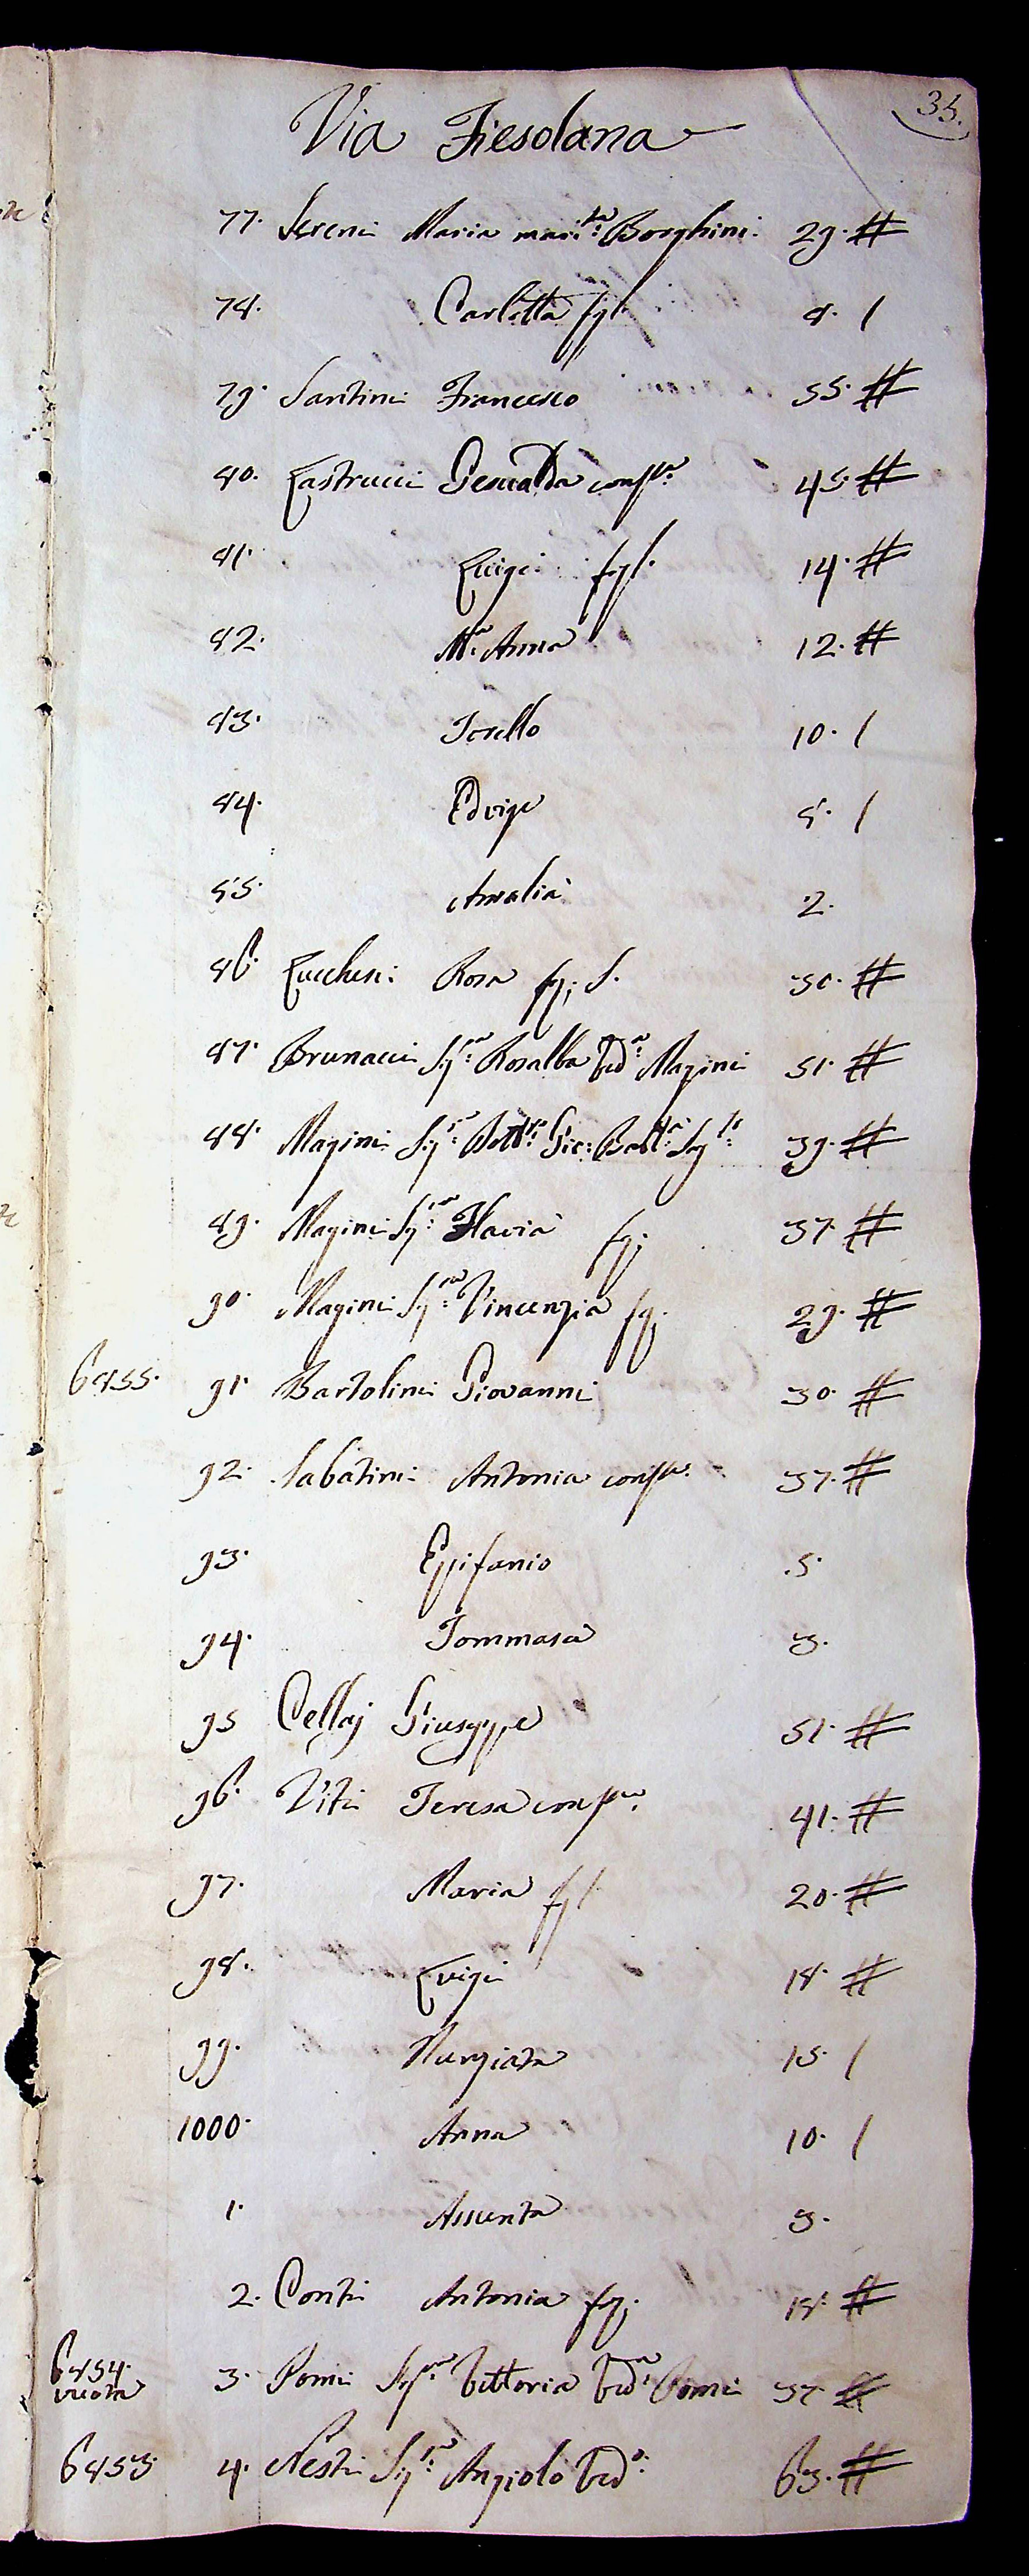 35.
Via Fiesolana
77. Sereni Maria mari:ta Borghini. 29. #
78. Carlotta fgl. 8. /
79. Santini Francesco 55. #
80. Lastrucci Gesualda consp:e 45. #
81. Luigi fgl. 14. #
82. M:a Anna 12. #
83. Torello 10. /
84. Edvige 8. /
85. Amalia 2.
86. Lucchesi Rosa fg; S. 50. #
87. Brunacci Sig:ra Rosalba Ved:a Magini 51. #
88. Magini Sig:r Dott:re Gio: Batt:a Fig:lo 39. #
89. Magini Sig:ra Flavia fg; 37. #
90. Magini Sig:ra Vincenzia fg. 29. #
6855. 91. Bartolini Giovanni 30. #
92. Sabatini Antonia consp:e 37. #
93. Epifanio 5.
94. Tommasa 3.
95 Cellaj Giuseppe 51. #
96. Viti Teresa consp:e 41. #
97. Maria fgl 20. #
98. Luigi 18. #
99. Nunziata 15. /
1000. Anna 10. /
1. Assunta 3.
2. Conti Antonia fg; 18. #
6854. vuota 3. Pomi Sig:ra Vittoria Ved:a Pomi 37. #
6853 4. Nesti Sig:r Angiolo Ved:o 63. #